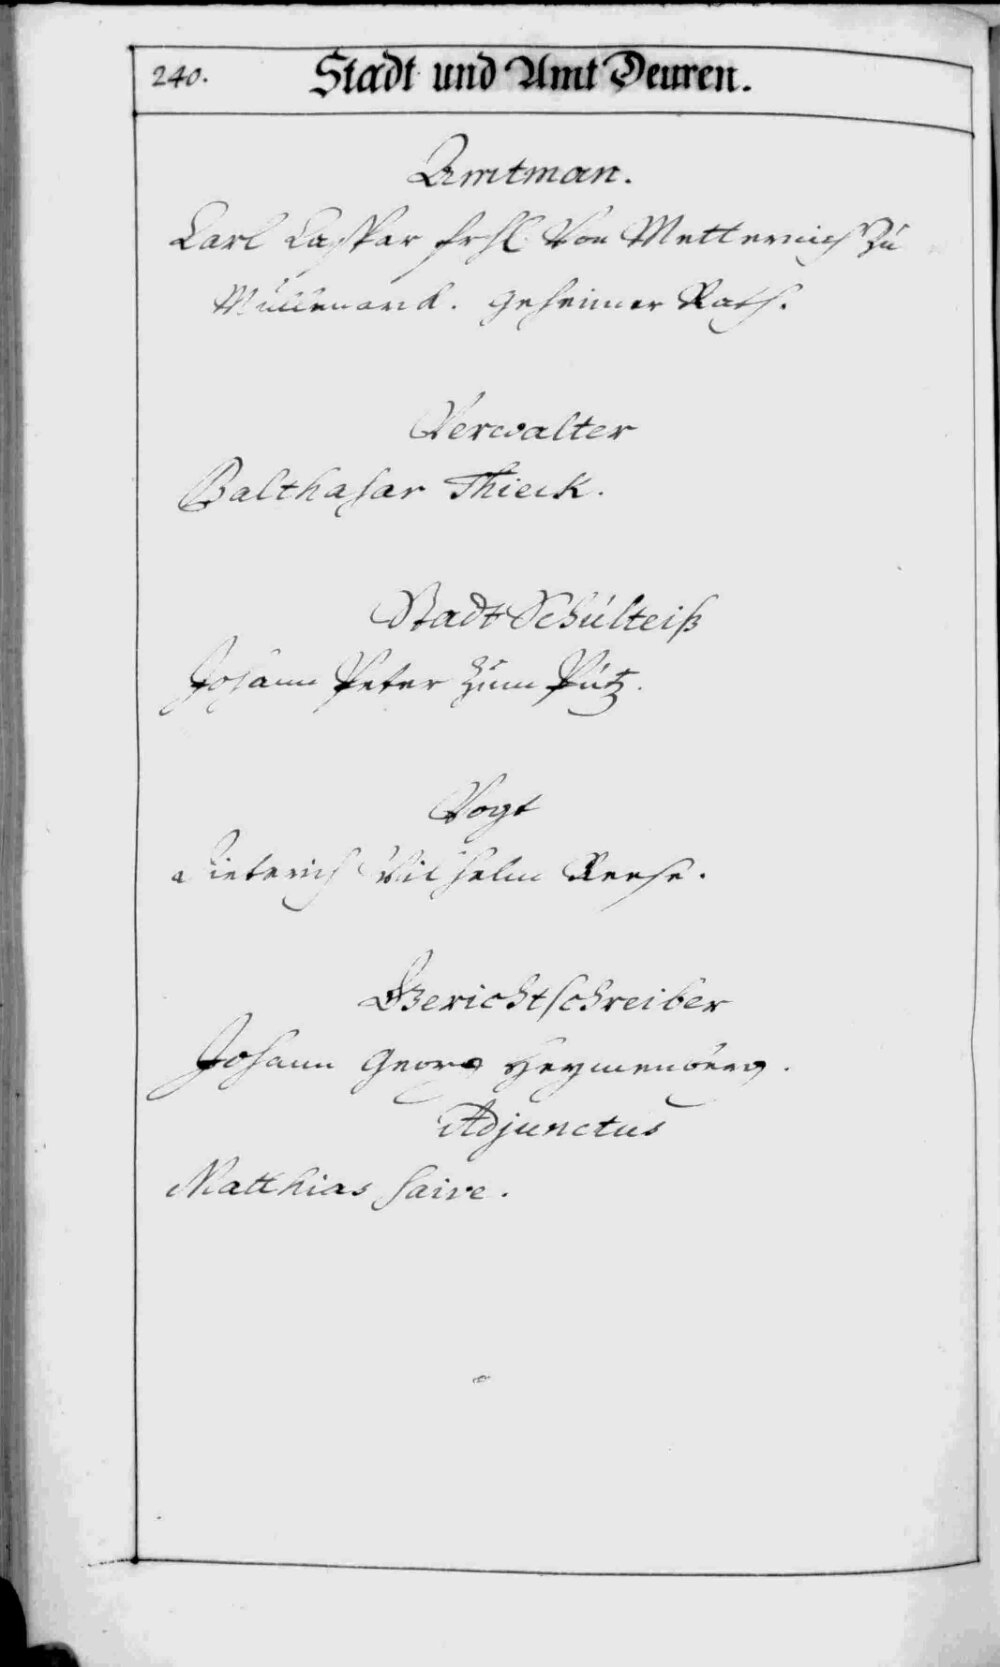 240. Stadt und Amt Deuren.
Amtman.
Carl Caspar frhl. von Metternich zu
Müllenarck. geheimer Rath.
Verwalter
Balthasar Thieck.
Stadt Schúlteiß
Johann Peter zum Pütz.
Vogt
Dieterich Wilhelm Reese.
Gerichtschreiber
Johann Georg Heymenberg.
Adjunctus
Matthias Saive.